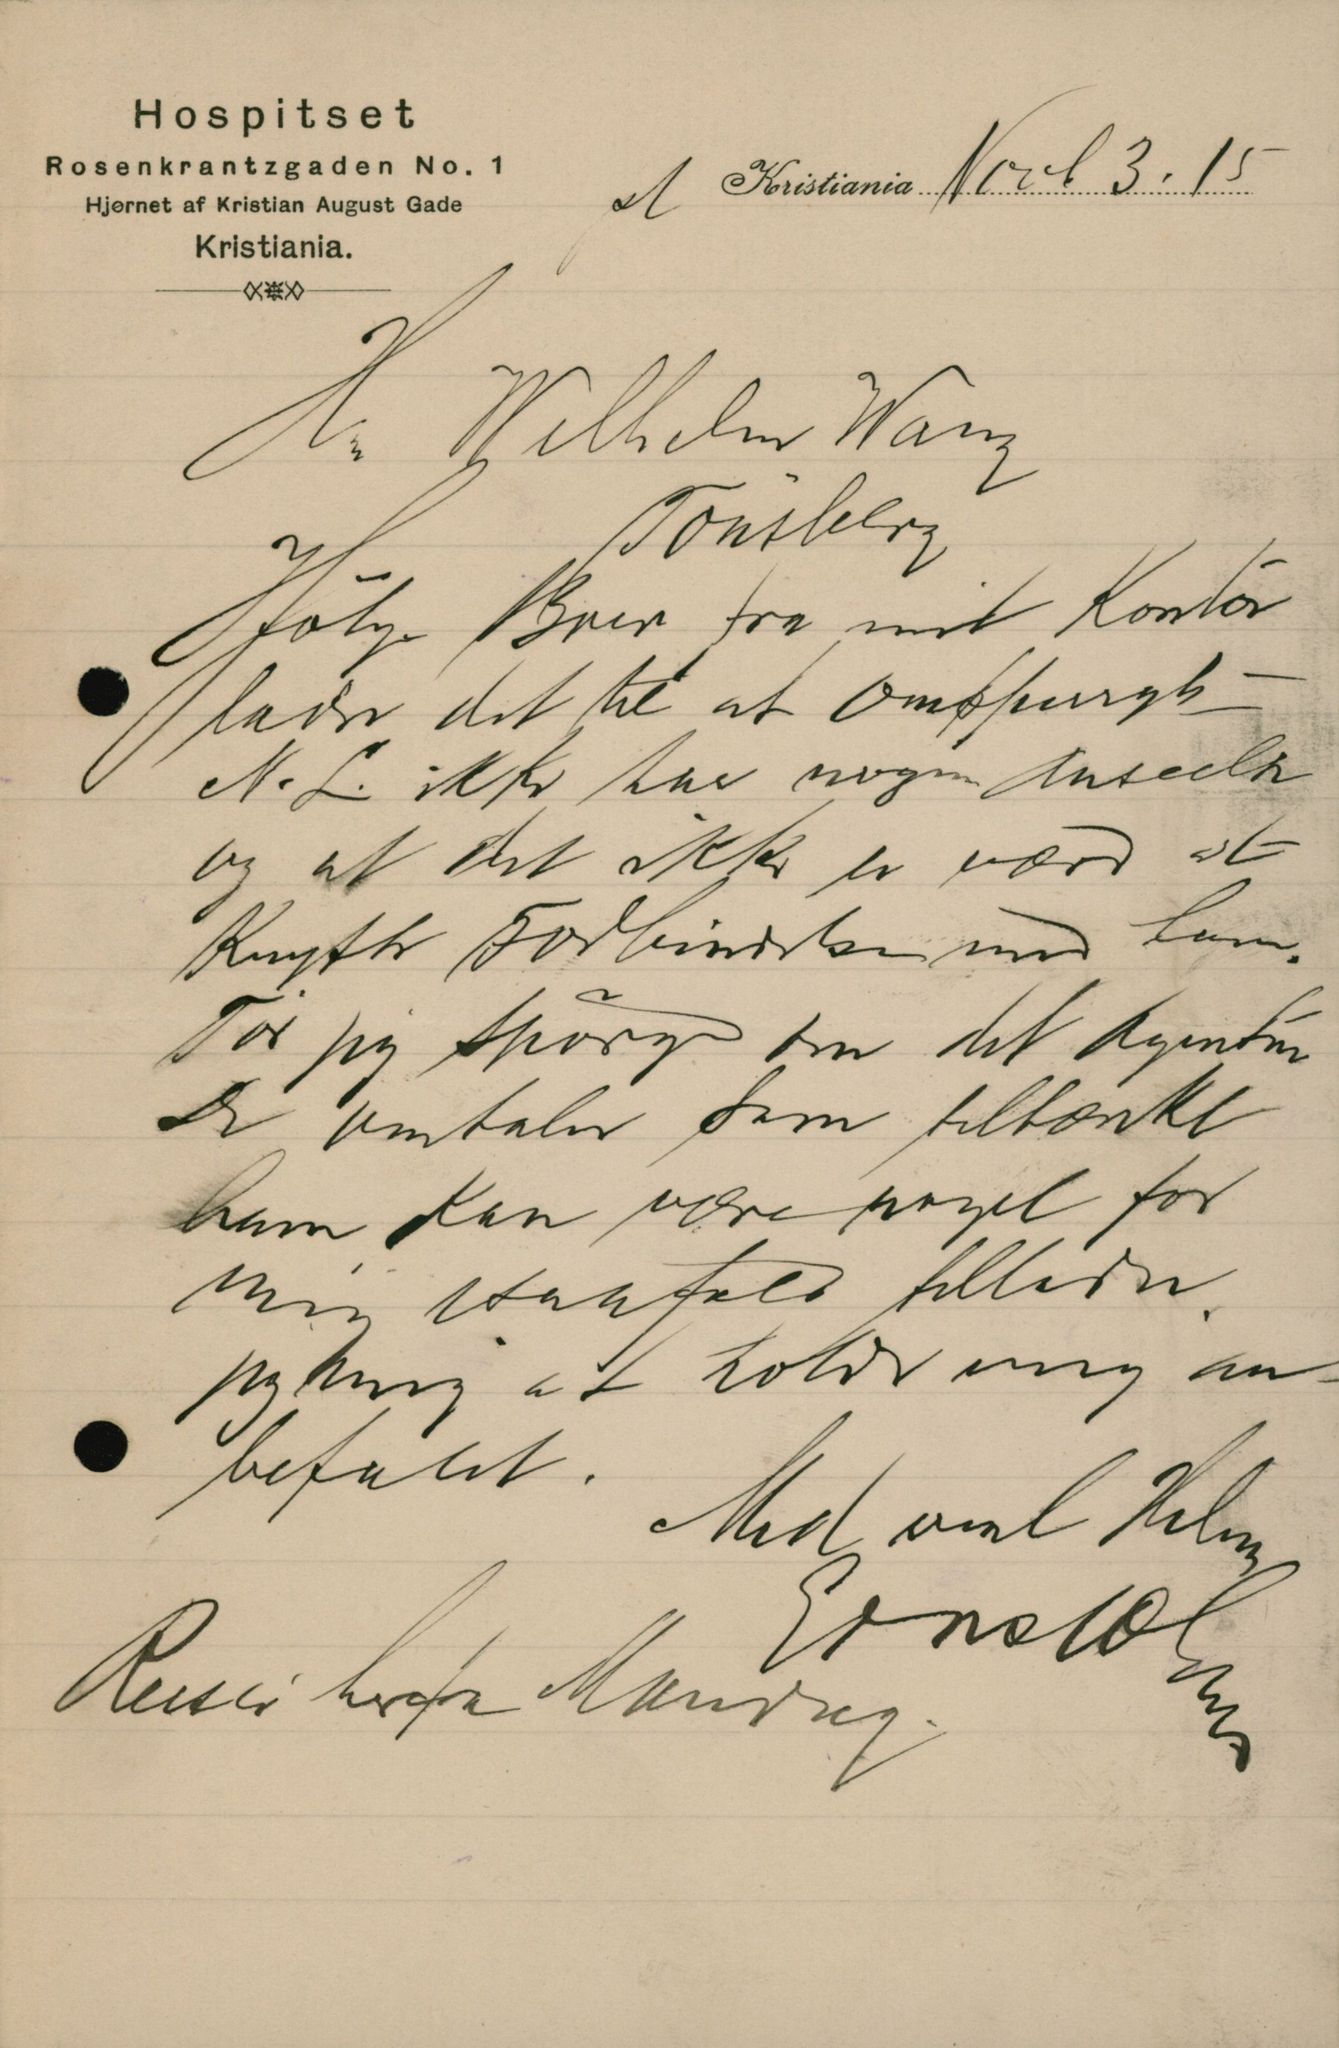 Hospitset
Rosenkrantzgaden No. 1
Hjørnet af Kristian August Gade
Kristiania.
Kristiania Novb 3. 15
Hr. Wilhelm Wang
Tönsberg
Ifölge Brev fra mit Kontör
lader det til at Omspurgte
N. L. ikke har nogen Anseelse
og at det ikke er værd at
Knytte Forbindelse med ham.
Tör jeg spörge om det Agentur
De omtaler som tiltænkt
ham kan være noget for
mig isaafald tillader
jeg mig at holde mig an-
befalet.
Med venl Hilsen
Ernst
Reiser herfra Mandag.